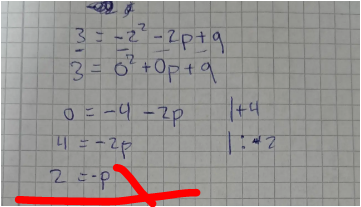 3 = -2² - 2p + q
3 = 0² + 0p + q
0 = -4 - 2p |+4
4 = -2p |: -2
2 = -p